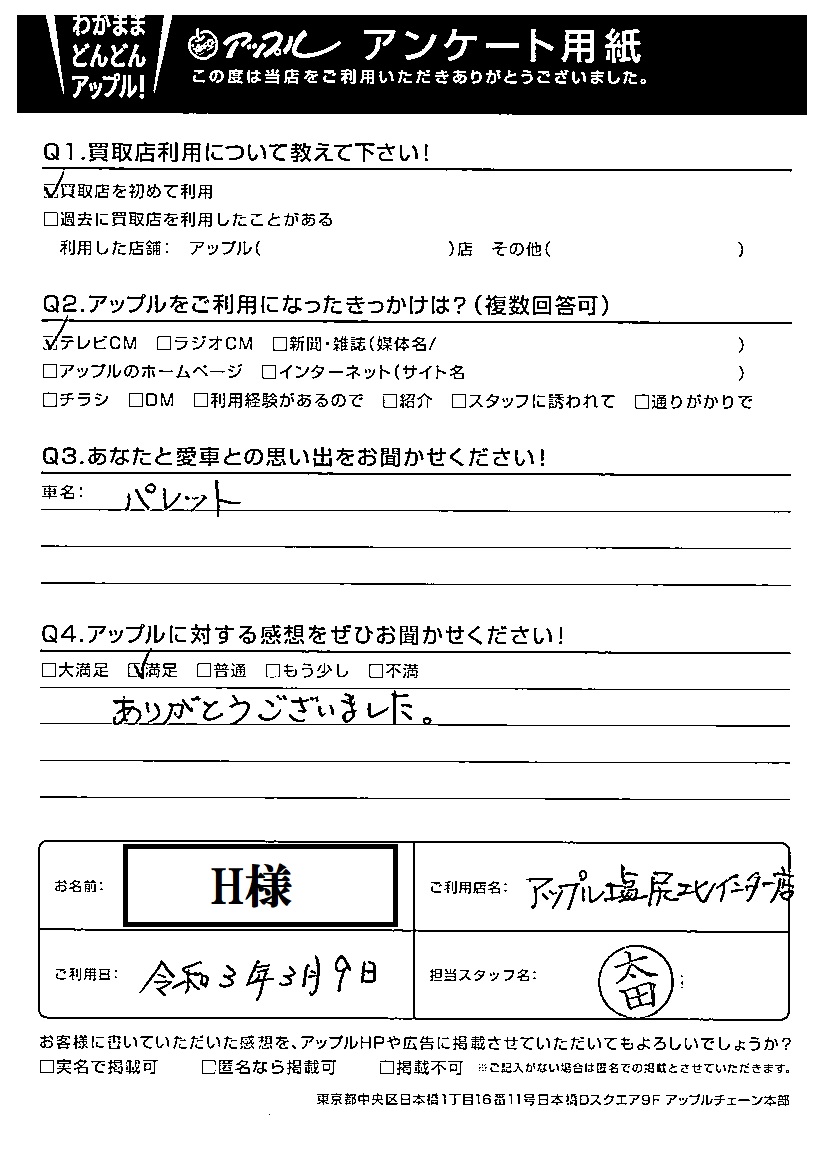 わがまま
どんどん
アップル!
アップル アンケート用紙
この度は当店をご利用いただきありがとうございました。
Q1.買取店利用について教えて下さい!
☑買取店を初めて利用
□過去に買取店を利用したことがある
利用した店舗: アップル( )店 その他( )
Q2.アップルをご利用になったきっかけは?(複数回答可)
☑テレビCM □ラジオCM □新聞・雑誌(媒体名/ )
□アップルのホームページ □インターネット(サイト名 )
□チラシ □DM □利用経験があるので □紹介 □スタッフに誘われて □通りがかりで
Q3.あなたと愛車との思い出をお聞かせください!
車名: パレット
Q4.アップルに対する感想をぜひお聞かせください!
□大満足 ☑満足 □普通 □もう少し □不満
ありがとうございました。
お名前: H様
ご利用店名: アップル塩尻北インター店
ご利用日: 令和3年3月9日
担当スタッフ名: 太田
お客様に書いていただいた感想を、アップルHPや広告に掲載させていただいてもよろしいでしょうか?
□実名で掲載可 □匿名なら掲載可 □掲載不可 ※ご記入がない場合は匿名での掲載とさせていただきます。
東京都中央区日本橋1丁目16番11号日本橋Dスクエア9F アップルチェーン本部